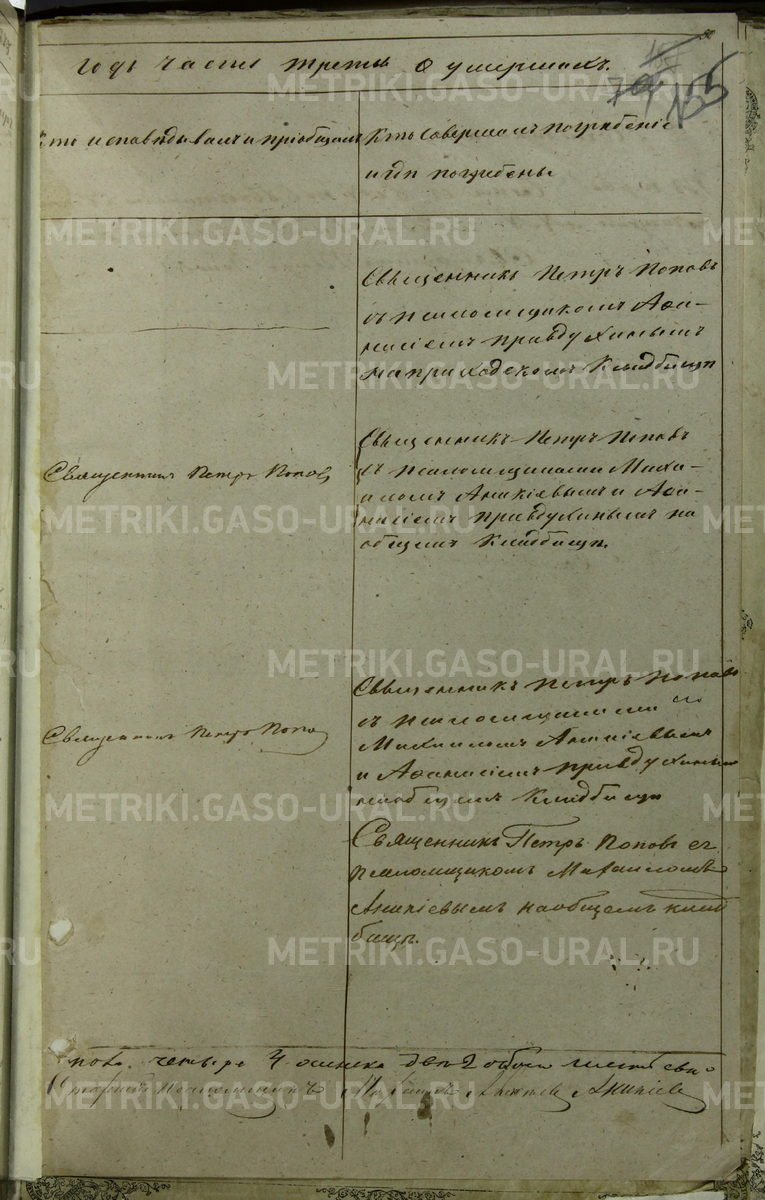 годъ часть третья О умершихъ.
50
55
Кто исповѣдывалъ и пріобщалъ
Кто совершалъ погребеніе
и гдѣ погребены
Священникъ Петръ Поповъ
съ псаломщикомъ Афа-
насіемъ Правдухинымъ
на приходскомъ кладбищѣ
Священникъ Петръ Поповъ
Священникъ Петръ Поповъ
съ псаломщиками Миха-
иломъ Аникіевымъ и Афа-
насіемъ Правдухинымъ на
общемъ кладбищѣ.
Священникъ Петръ Попов
Священникъ Петръ Поповъ
съ псаломщиками
Михаиломъ Аникіевымъ
и Афанасіемъ Правдухинымъ
на общемъ кладбищѣ
Священникъ Петръ Поповъ съ
псаломщикомъ Михаиломъ
Аникіевымъ на общемъ клад
бищѣ.
четыре 4 обоего
псаломщикъ Аникіевъ
METRIKI.GASO-URAL.RU